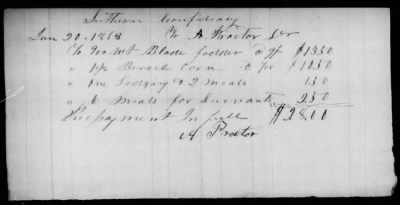 Suthern Confedracy
Jan 20. 1863 To A Proctor Dr
To 700 wt Blade fodder $13.50
" Barrel Corn $10.50
" Lodging & 2 Meals 1.50
" 6 Meals for Survant 2.50
payment In full $28.00
A Proctor